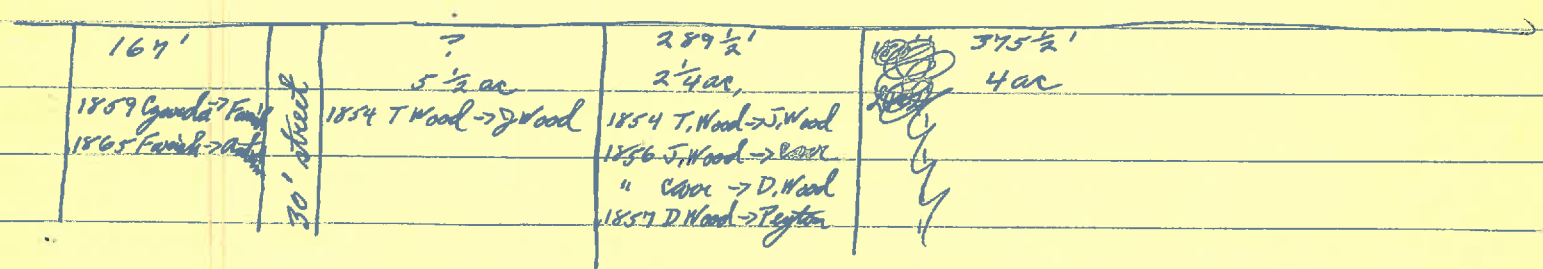 167'
1859 → Farish
1865 Farish →
30' street
?
5 1/2 ac
1854 T Wood → J Wood
289 1/2'
2 1/4 ac,
1854 T. Wood → J. Wood
1856 J. Wood → Carr
" Carr → D. Wood
1857 D Wood → Peyton
375 1/2'
4 ac